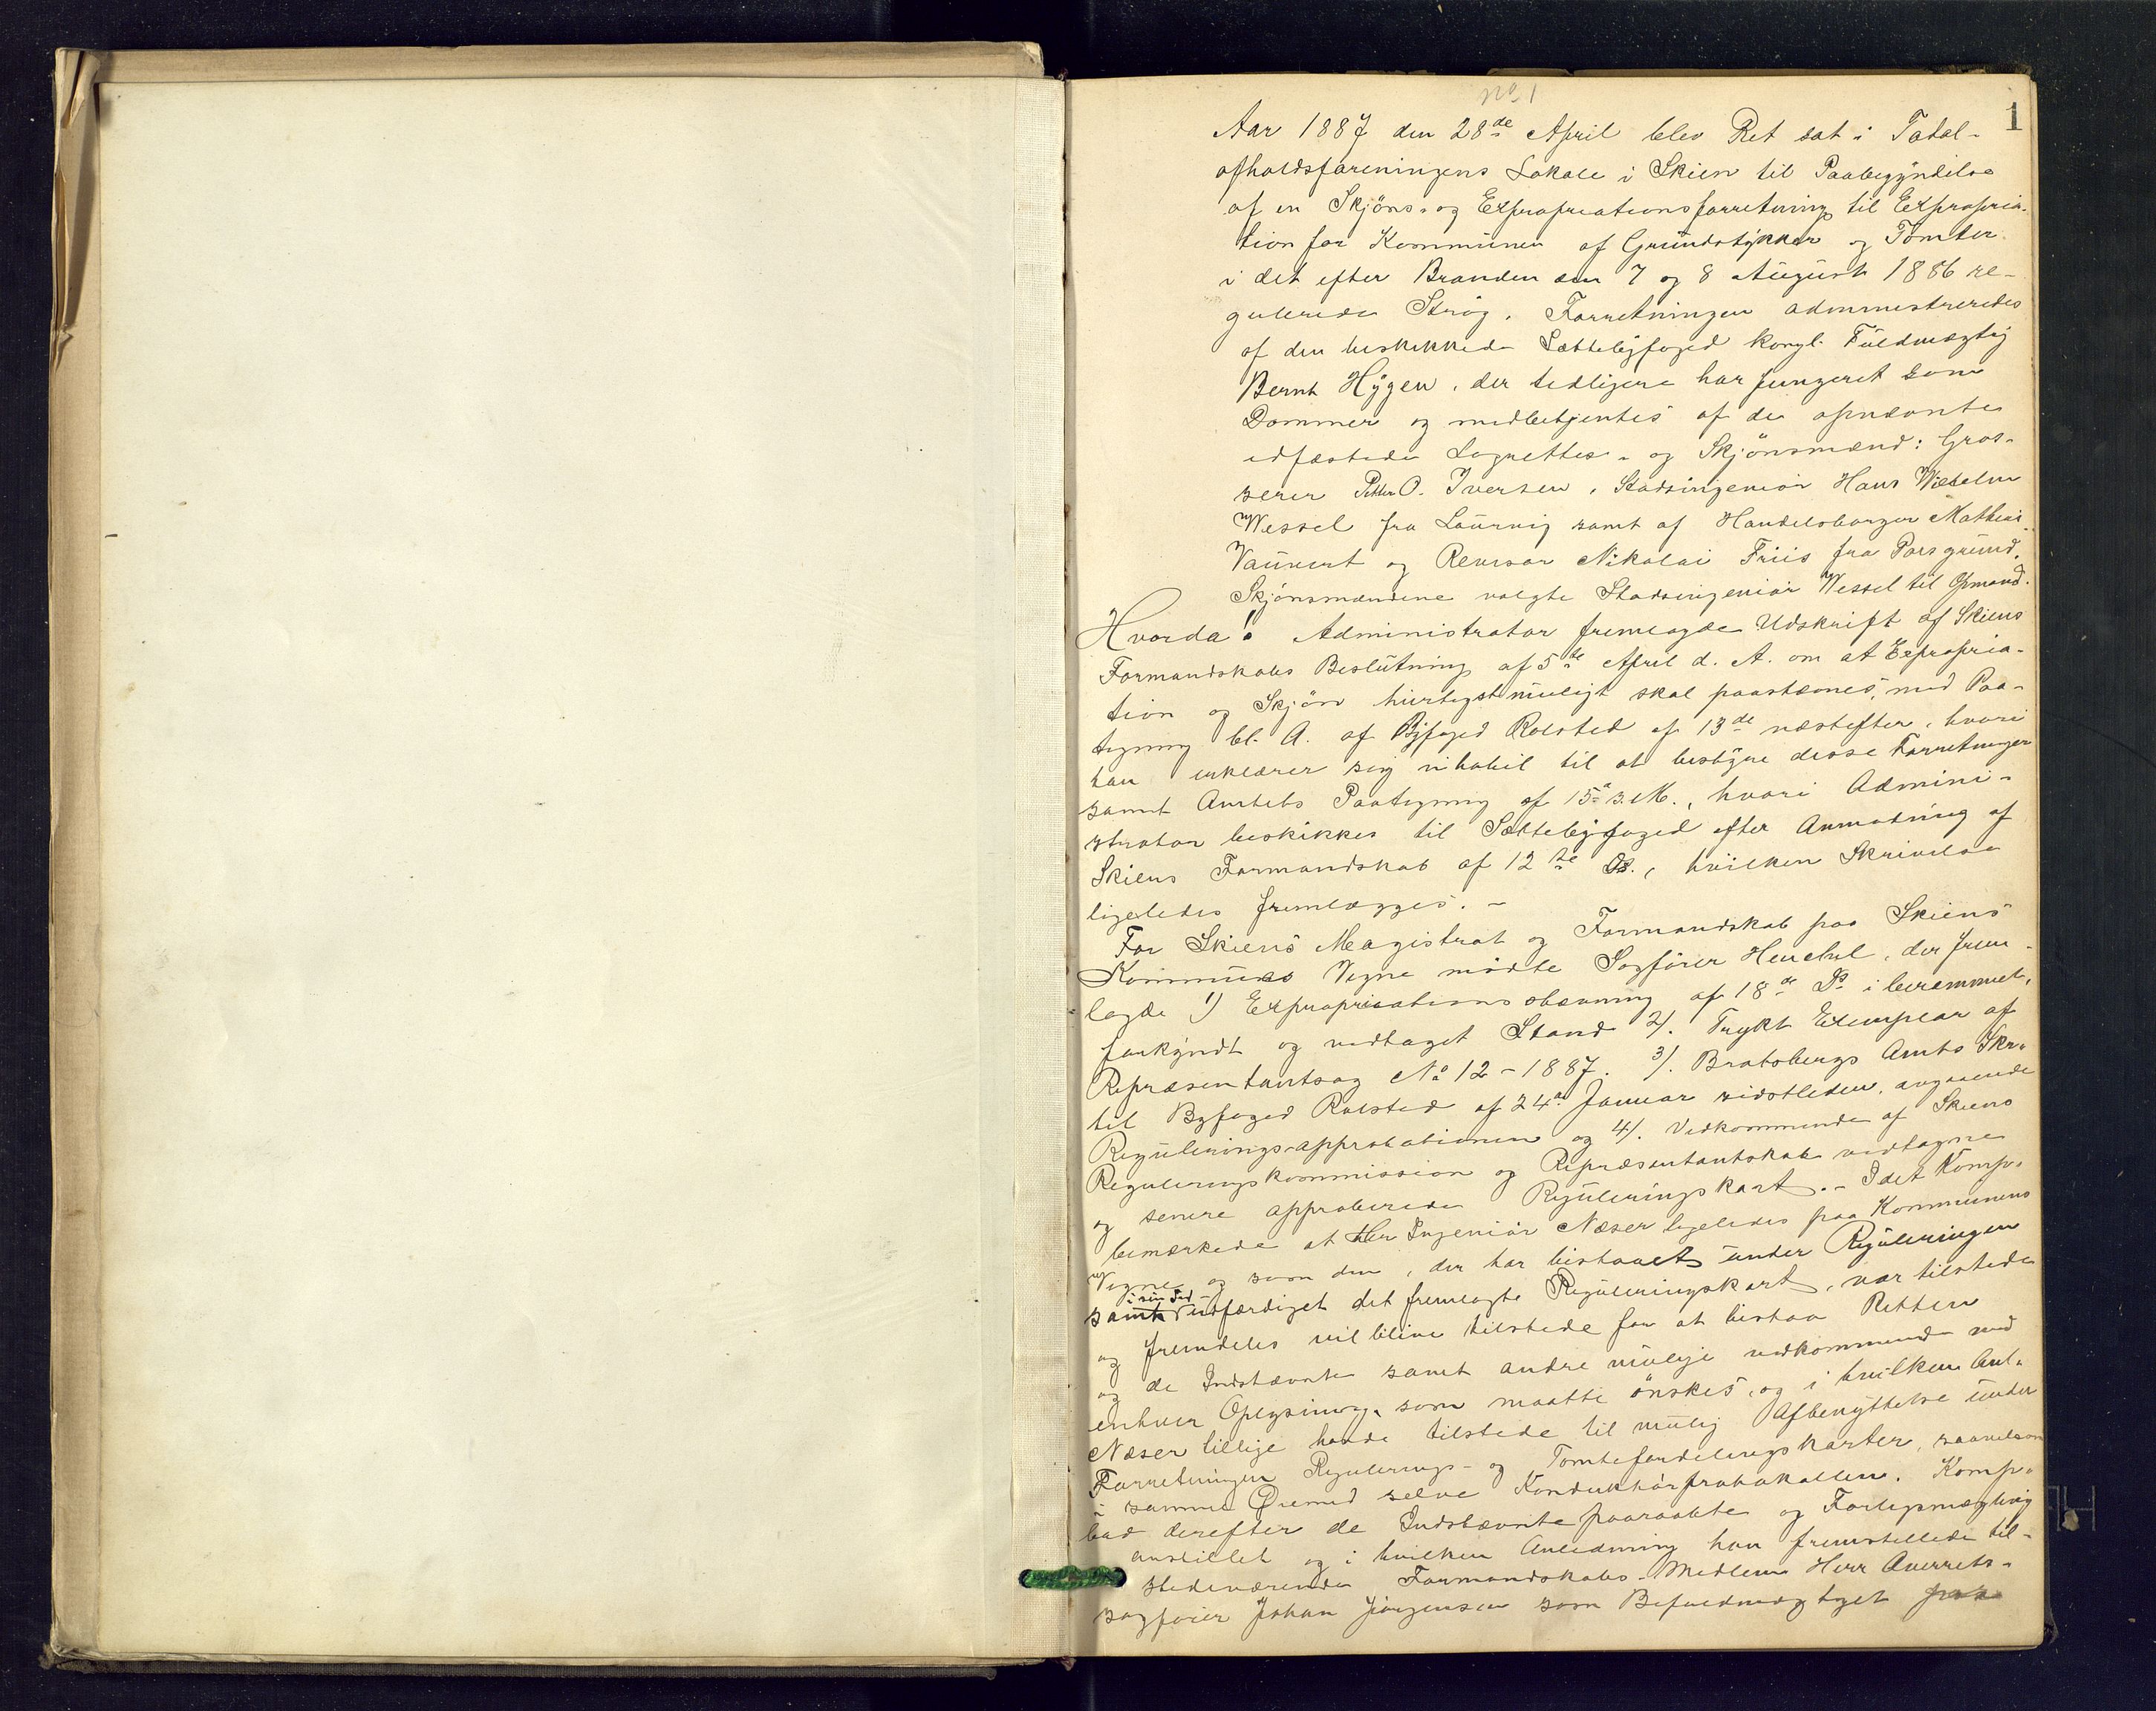 No 1
1
Aar 1887 den 28de April blev Ret sat i Total-
afholdsforeningens Lokale i Skien til Paabegyndelse
af en Skjöns- og Expropriationsforretning til Expropria-
tion for Kommunen af Grundstykker og Tomter
i det efter Branden den 7 og 8 August 1886 re-
gulerede Strög. Forretningen administreredes
af den beskikkede Sættebyfoged kongl. Fuldmægtig
Bernt Hygen, der tidligere har fungeret som
Dommer og medbetjentes af de opnævnte
edfæstede Lagrettes- og Skjönsmænd: Gros-
serer Petter O. Iversen, Stadsingeniör Hans Wilhelm
Wessel fra Laurvig samt af Handelsborger Mathias
Vauvert og Revisor Nikolai Friis fra Porsgrund.
Skjönsmændene valgte Stadsingeniör Wessel til Opmand.
Hvorda: Administrator fremlagde Udskrift af Skiens
Formandskabs Beslutning af 5te April d. A. om at Expropria-
tion og Skjön hurtigst muligt skal paastævnes, med Paa-
tegning bl. A. af Byfoged Rolsted af 13de næstefter, hvori
han erklærer sig inhabil til at bestyre disse Forretninger
samt Amtets Paategning af 15de s. M., hvori Admini-
strator beskikkes til Sættebyfoged efter Anmodning af
Skiens Formandskab af 12te Ds., hvilken Skrivelse
ligeledes fremlægges. -
For Skiens Magistrat og Formandskab paa Skiens
Kommunes Vegne mödte Sagförer Henchel, der frem-
lagde 1) Expropriationsstævning af 18de Ds i berammet,
forkyndt og vedtaget Stand 2). Trykt Exemplar af
Repræsentantsag No 12 - 1887. 3). Bratsbergs Amts Skr.
til Byfoged Rolsted af 24de Januar sidstleden, angaaende
Reguleringsapprobationen og 4). Vedkommende af Skiens
Reguleringskommission og Repræsentantskab vedtagne
og senere approberede Reguleringskart. - Idet Komp.
bemærkede at Herr Ingeniör Næser ligeledes paa Kommunens
Vegne og som den, der har bistaaet under Reguleringen
samt i sin Tid udfærdiget det fremlagte Reguleringskart, var tilstede
og fremdeles vil blive tilstede for at bistaa Retten
og de Indstævnte samt andre mulige vedkommende med
enhver Oplysning, som maatte önskes, og i hvilken Anl.
Næser tillige havde tilstede til mulig Afbenyttelse under
Forretningen Regulerings- og Tomtefordelingskarter, saavelsom
i samme Öiemed selve Konduktörprotokollen. Komp.
bad derefter de Indstævnte paaraabte og Forligsmægling
anstillet og i hvilken Anledning han fremstillede til-
stedeværende Formandskabs-Medlem Herr Overrets-
sagförer Johan Jörgensen som Befuldmægtiget